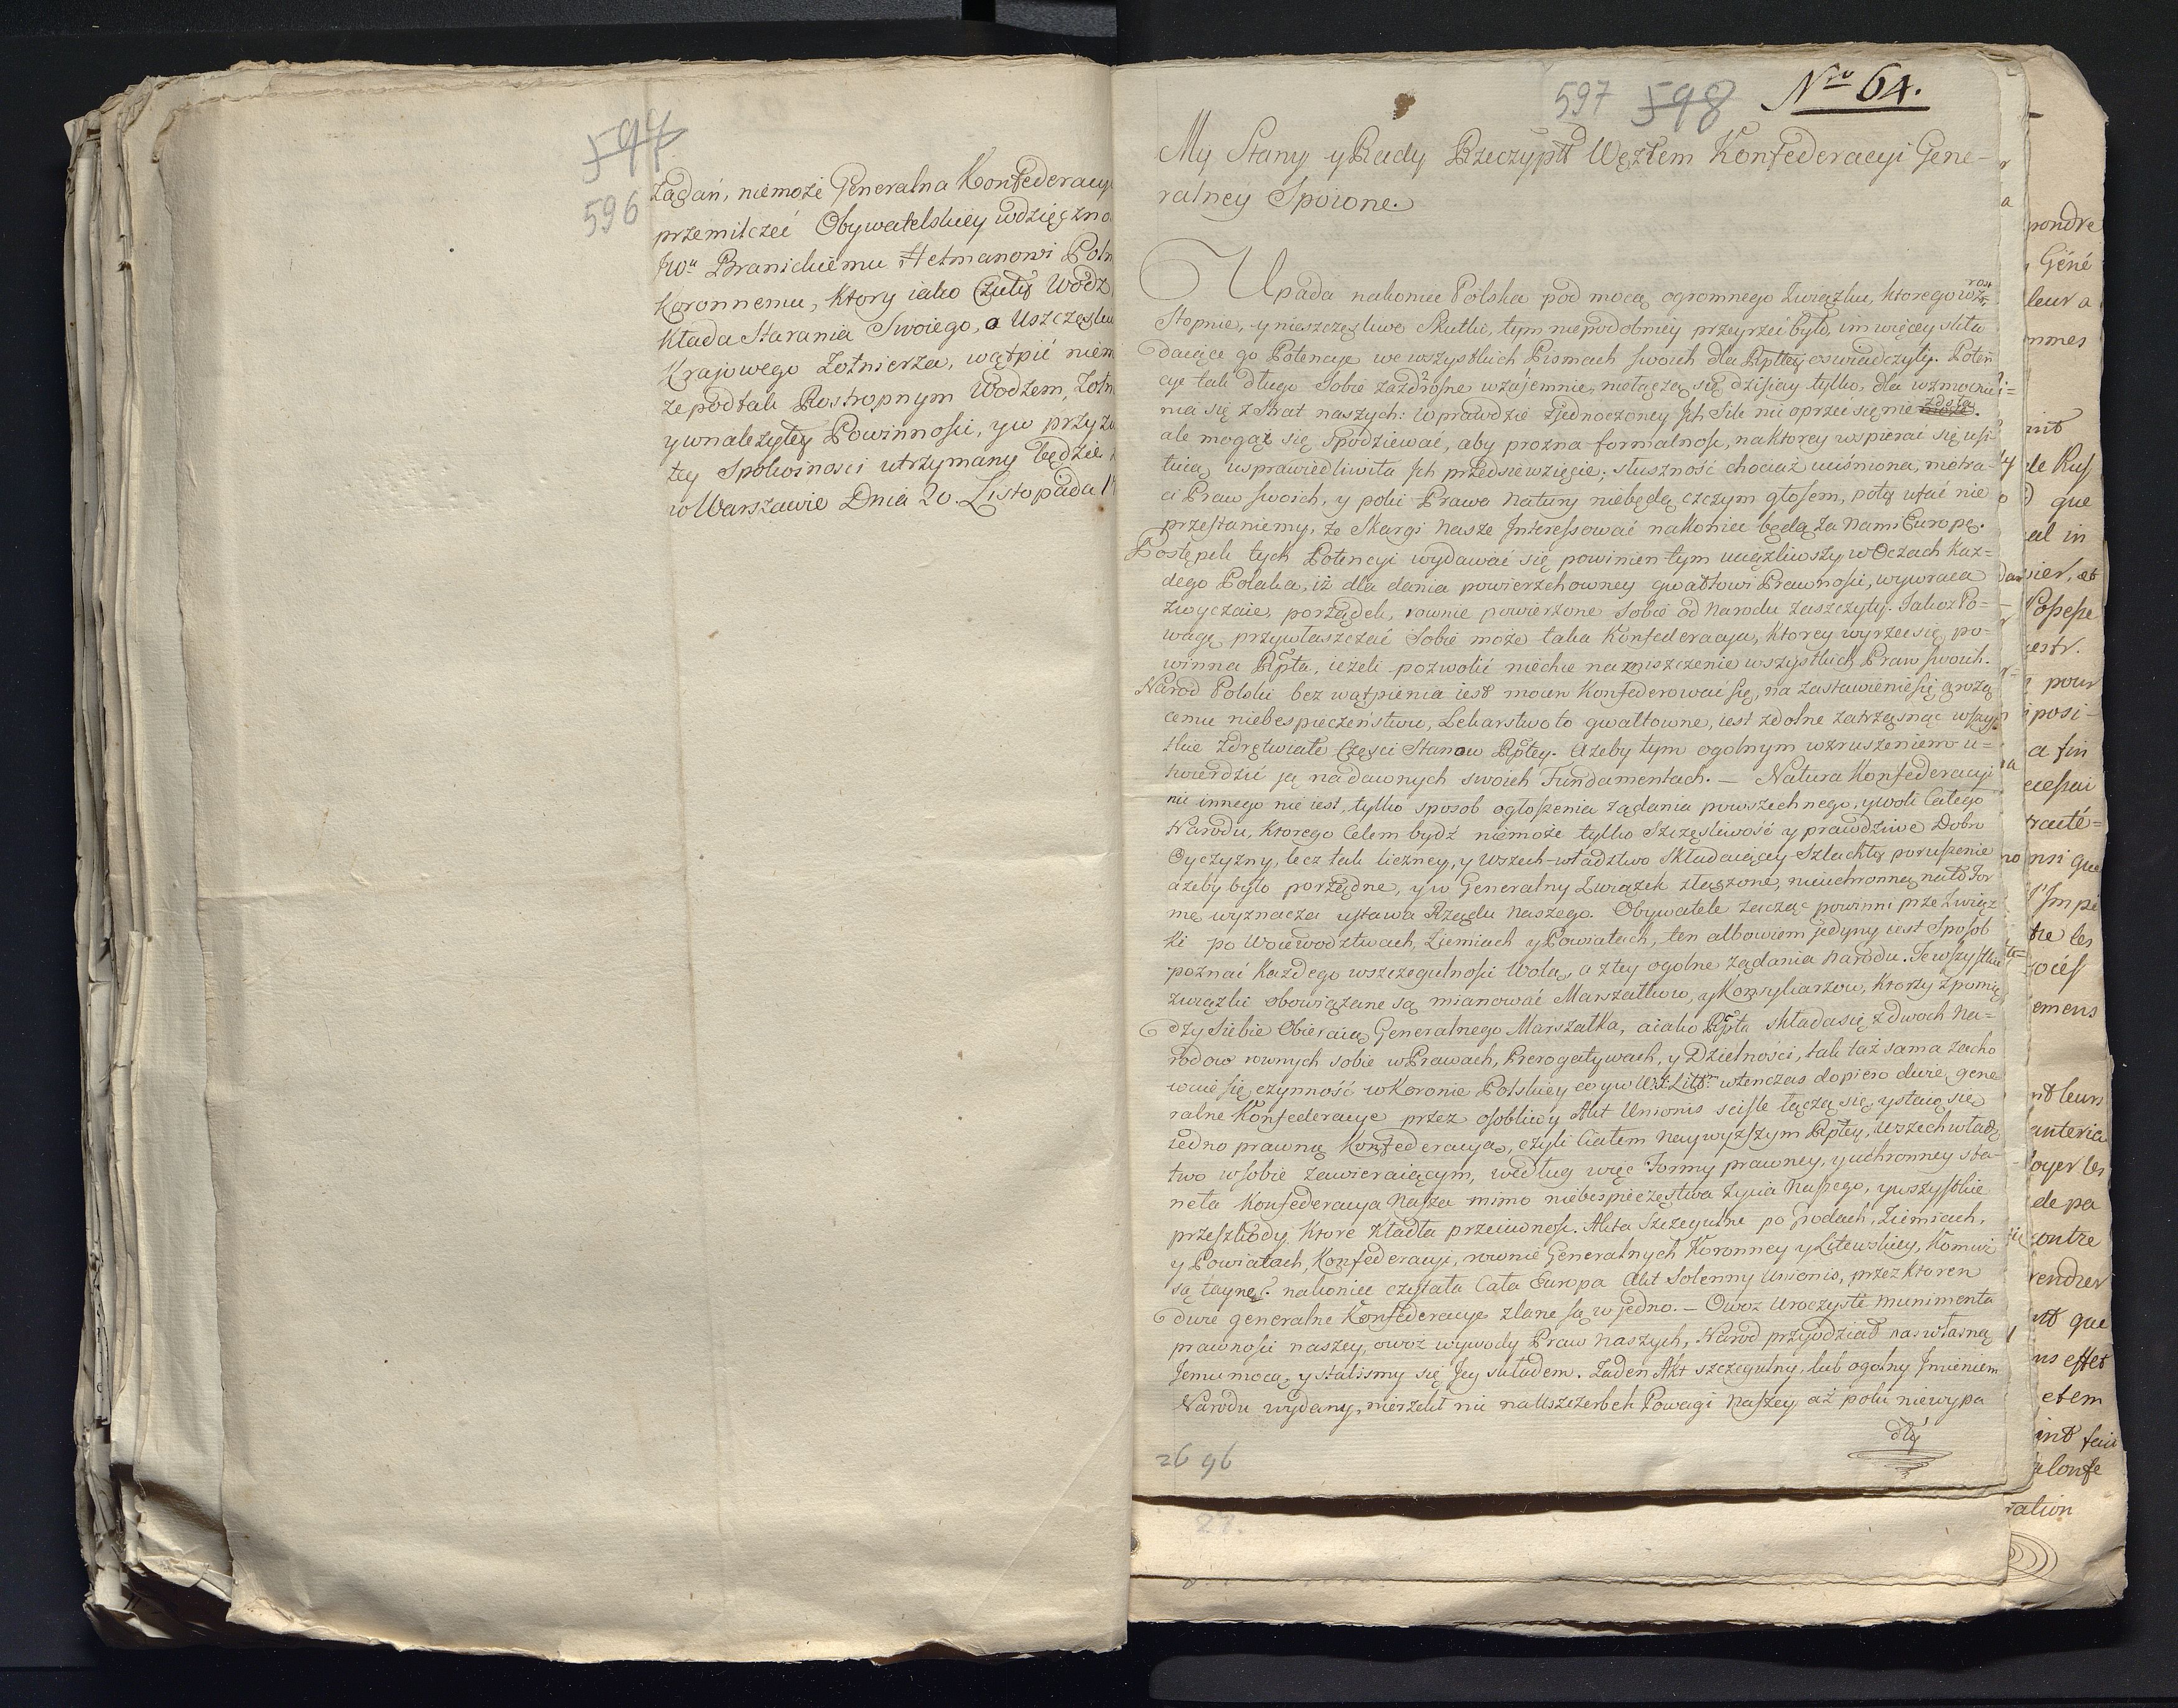 597
596
żądań, niemoże Generalna Konfederacy
przemilczeć Obywatelskiey wdzięczno
JWu Branickiemu Hetmanowi Poln
Koronnemu, ktory iako Czuły Wodz
Kłada Starania Swoiego, o Uszczęsliw
Krajowego Zołnierza, wątpić niem
ze pod tak Rostropnym Wodzem, Zołn
y wnależytey Powinnosci, y w przyzw
tey Spokoinosci utrzymany będzie
w Warszawie Dnia 20. Listopada 1
597 598 Nro 64.
My Stany y Rady Rzeczyptt Węzłem Konfederacyi Gene-
ralney Spoione.
Upada nakoniec Polska pod mocą ogromnego Związku, ktorego wzrost
Stopnie, y nieszczęsliwe Skutki, tym niepodobniey przeyrzeć było, im więcey skła
daiące go Potencye we wszystkich Pismach swoich dla Rpltey oswiadczyły. Poten
cye tak długo Sobie zazdrosne wzajemnie, niełączą się dzisiay tylko, dla wzmocnie-
nia się z Strat naszych: wprawdzie zjednoczoney Ich Sile nic oprzeć się nie zdoła.
ale mogąż się spodziewać, aby prozna formalnosc, na ktorey wspierać się usi-
łuią, usprawiedliwiła Ich przedsiewzięcie; słuszność chociaż ucisniona, nietra-
ci Praw swoich, y poki Prawa Natury niebędą czczym głosem, poty ufać nie
przestaniemy, że Skargi Nasze Interessować nakoniec będą za Nami Europę.
Postępek tych Potencyi wydawać się powinien tym uciążliwszy w Oczach Kaz=
dego Polaka, iż dla dania powierzchowney gwałtowi Prawnosci, wywraca
zwyczaie, porządek, rownie powierzone Sobie od Narodu zaszczyty. Jakoz Po=
wagę przywłaszczać Sobie może taka Konfederacya, ktorey wyrzec się po=
winna Rpta, ieżeli pozwolić niechce na zniszczenie wszystkich Praw swoich.
Narod Polski bez wątpienia iest mocen Konfederować się, na zastawienie się grożą
cemu niebespieczeństwu, Lekarstwo to gwałtowne, iest zdolne zatrząsnąc wszy
stkie zdrętwiałe Częsci Stanow Rptey. Azeby tym ogolnym wzruszeniem u=
twierdzić ją na dawnych swoich Fundamentach. — Natura Konfederacyi
nic innego nie iest, tylko sposob ogłoszenia żądania powszechnego, y woli Całego
Narodu, Ktorego Celem bydź niemoże tylko Szczęsliwość y prawdziwe Dobro
Oyczyzny, lecz tak liczney, y Wszech-władztwo Składaiącey Szlachty poruszenie
azeby było porządne, y w Generalny Związek złączone, nieuchronną nato For
mę wyznacza ustawa Rządu Naszego. Obywatele zacząc powinni prze Związ
ki po Woiewodztwach, Ziemiach y Powiatach, ten albowiem jedyny iest Sposob
poznać Każdego wszczegulnosci Wolą, a z tey ogolne żądania Narodu. Te wszystkie
związki obowiązane są mianować Marszałkow, y Konsyliarzow, Ktorzy z pomię
dzy Siebie Obieraią Generalnego Marszałka, a iako Rpta składa się z dwoch Na=
rodow rownych sobie w Prawach, Prerogatywach, y Dzielności, tak taż sama zacho
wuie się czynność w Koronie Polskiey co y w W.X.Litt. wtenczas dopiero dwie gene
ralne Konfederacye przez osobliwy Akt Unionis scisle łączą się, y staią się
iedno prawną Konfederacyą, czyli Ciałem Naywyższym Rptey, Wszechwładz
two w sobie zawieraiącym, według więc Formy prawney, y uchronney sta-
neła Konfederacya Nasza mimo niebespieczęstwa życia Naszego, y wszystkie
przeszkody Ktore Kładła przeciwnosc. Akta szczegulne po Grodach, Ziemiach,
y Powiatach, Konfederacyi, rownie Generalnych Koronney y Litewskiey, Komuż
są tayne? nakoniec czytała Cała Europa Akt Solenny Unionis, przez ktoren
dwie generalne Konfederacye zlane są w jedno. — Owoz Uroczyste Munimenta
prawnosci naszey, owoz wywody Praw Naszych, Narod przyodział nas własną
Jemu mocą, y stalismy się Jey składem. Zaden Akt szczegulny, lub ogolny Imieniem
Narodu wydany, nierzekł nic na Uszczerbek Powagi Naszey, aż poki niewypa
dły
26 96
27.
pondre
Géné
leur a
que
al in
pour
posi-
a fin
nsi que
emens
nt leurs
oyer les
de pa
contre
nt que
et em
ration